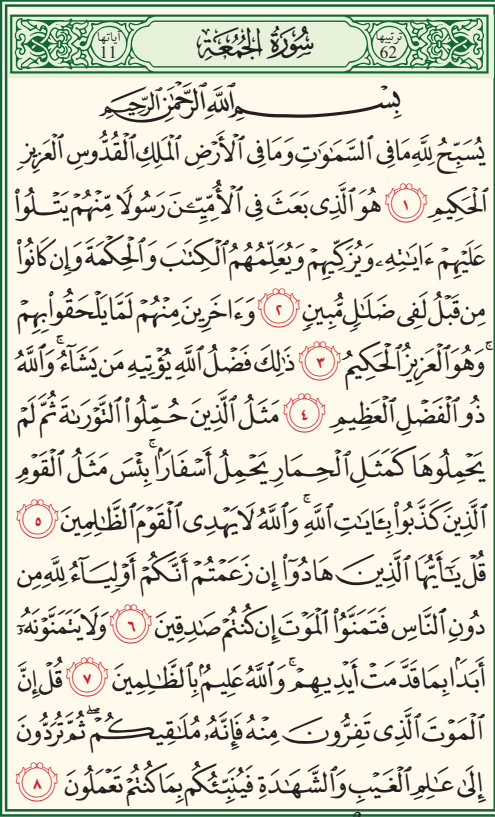 ترتيبها 62 سُورَةُ الجُمُعَةِ آياتها 11
بِسْمِ ٱللَّهِ ٱلرَّحْمَٰنِ ٱلرَّحِيمِ
يُسَبِّحُ لِلَّهِ مَا فِى ٱلسَّمَٰوَٰتِ وَمَا فِى ٱلْأَرْضِ ٱلْمَلِكِ ٱلْقُدُّوسِ ٱلْعَزِيزِ
ٱلْحَكِيمِ ١ هُوَ ٱلَّذِى بَعَثَ فِى ٱلْأُمِّيِّـۧنَ رَسُولًا مِّنْهُمْ يَتْلُوا۟
عَلَيْهِمْ ءَايَٰتِهِۦ وَيُزَكِّيهِمْ وَيُعَلِّمُهُمُ ٱلْكِتَٰبَ وَٱلْحِكْمَةَ وَإِن كَانُوا۟
مِن قَبْلُ لَفِى ضَلَٰلٍ مُّبِينٍ ٢ وَءَاخَرِينَ مِنْهُمْ لَمَّا يَلْحَقُوا۟ بِهِمْ
ۚ وَهُوَ ٱلْعَزِيزُ ٱلْحَكِيمُ ٣ ذَٰلِكَ فَضْلُ ٱللَّهِ يُؤْتِيهِ مَن يَشَآءُ ۚ وَٱللَّهُ
ذُو ٱلْفَضْلِ ٱلْعَظِيمِ ٤ مَثَلُ ٱلَّذِينَ حُمِّلُوا۟ ٱلتَّوْرَىٰةَ ثُمَّ لَمْ
يَحْمِلُوهَا كَمَثَلِ ٱلْحِمَارِ يَحْمِلُ أَسْفَارًۢا ۚ بِئْسَ مَثَلُ ٱلْقَوْمِ
ٱلَّذِينَ كَذَّبُوا۟ بِـَٔايَٰتِ ٱللَّهِ ۚ وَٱللَّهُ لَا يَهْدِى ٱلْقَوْمَ ٱلظَّٰلِمِينَ ٥
قُلْ يَٰٓأَيُّهَا ٱلَّذِينَ هَادُوٓا۟ إِن زَعَمْتُمْ أَنَّكُمْ أَوْلِيَآءُ لِلَّهِ مِن
دُونِ ٱلنَّاسِ فَتَمَنَّوُا۟ ٱلْمَوْتَ إِن كُنتُمْ صَٰدِقِينَ ٦ وَلَا يَتَمَنَّوْنَهُۥٓ
أَبَدًۢا بِمَا قَدَّمَتْ أَيْدِيهِمْ ۚ وَٱللَّهُ عَلِيمٌۢ بِٱلظَّٰلِمِينَ ٧ قُلْ إِنَّ
ٱلْمَوْتَ ٱلَّذِى تَفِرُّونَ مِنْهُ فَإِنَّهُۥ مُلَٰقِيكُمْ ۖ ثُمَّ تُرَدُّونَ
إِلَىٰ عَٰلِمِ ٱلْغَيْبِ وَٱلشَّهَٰدَةِ فَيُنَبِّئُكُم بِمَا كُنتُمْ تَعْمَلُونَ ٨